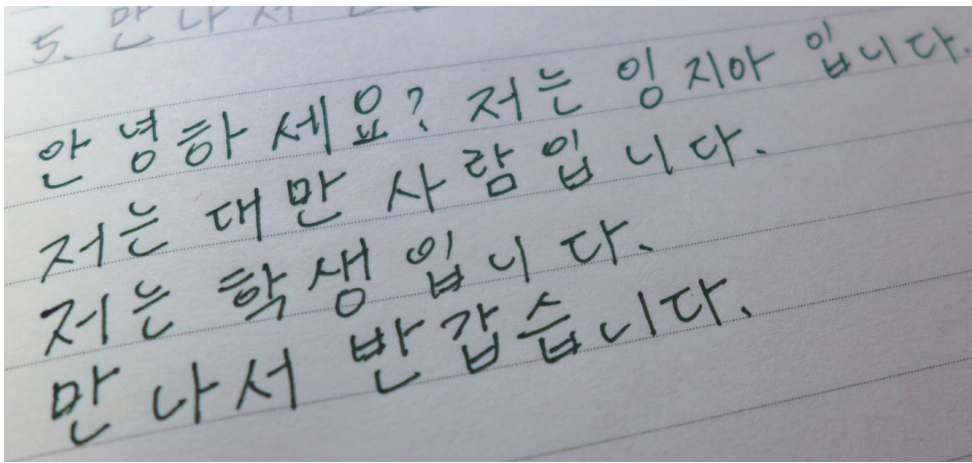 5. 만나서
안녕하세요? 저는 잉지아 입니다.
저는 대만 사람입니다.
저는 학생입니다.
만나서 반갑습니다.